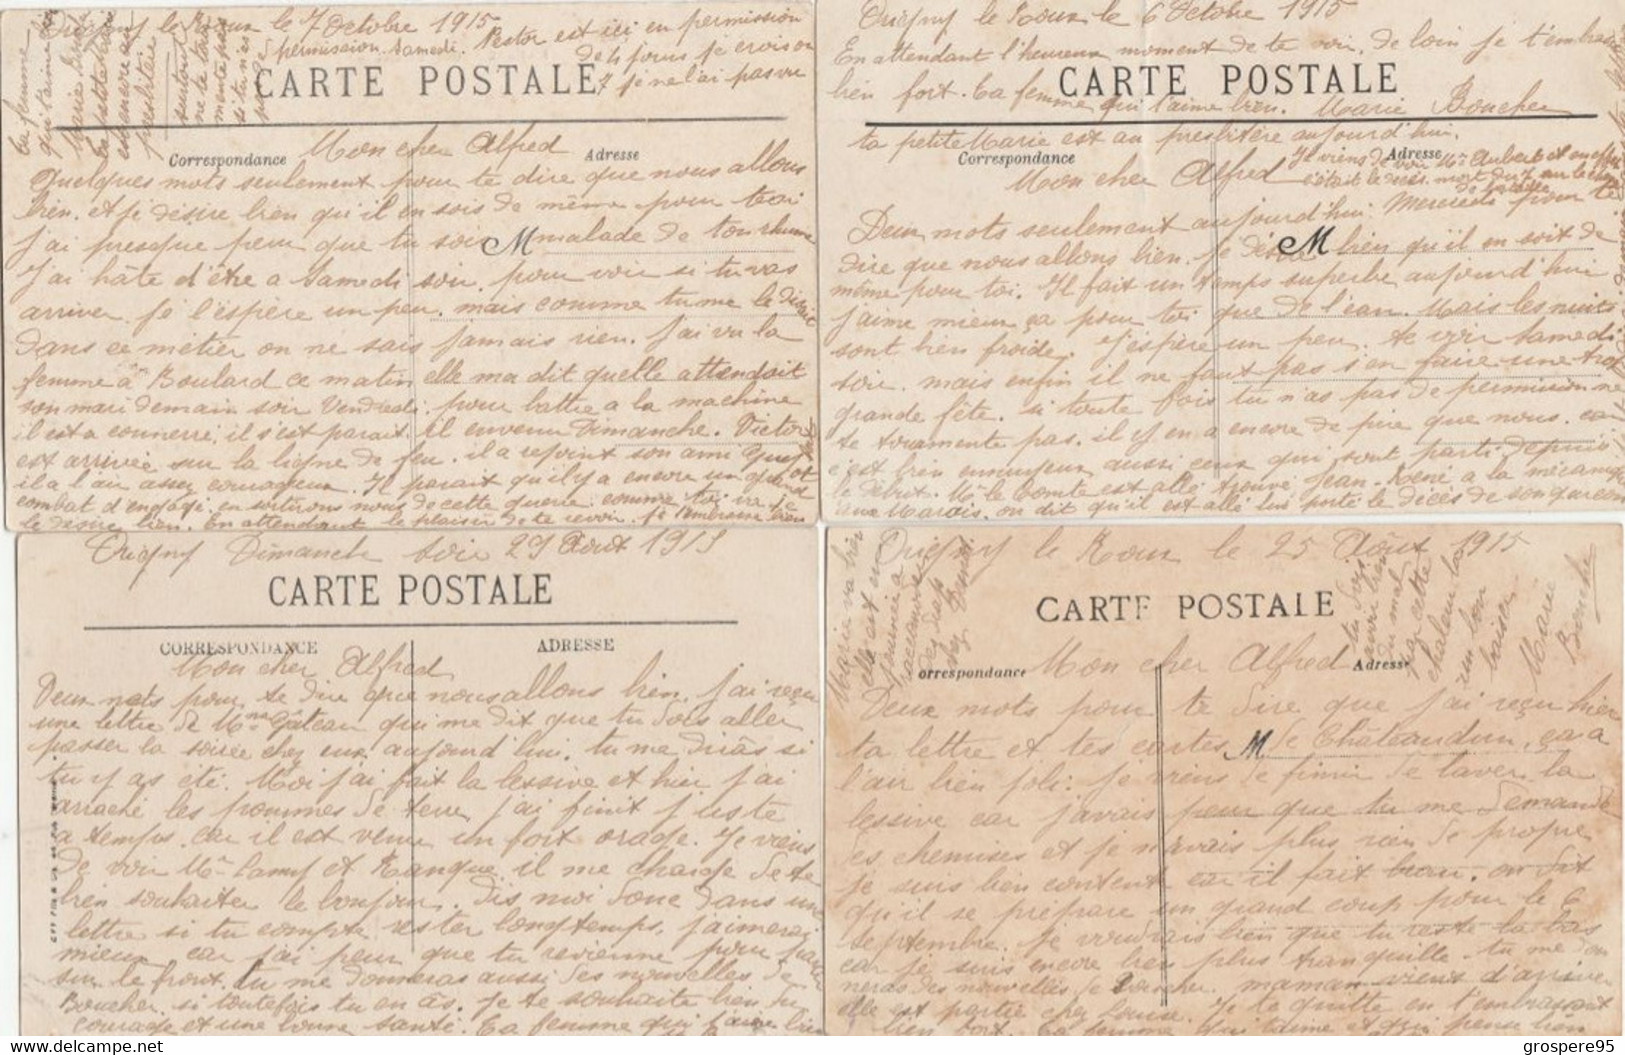 Origny le Roux le 7 Octobre 1915
permission Samedi. Nestor est ici en permission
de 4 jours je crois on
7 je ne l'ai pas vu
ta femme
qui t'aime
CARTE POSTALE
Correspondance
Adresse
Mon cher Alfred
Quelques mots seulement pour te dire que nous allons
bien. et je désire bien qu'il en sois de même pour toi
j'ai presque peur que tu sois M malade de ton rhume
J'ai hâte d'être a Samedi soir, pour voir si tu vas
arriver. je l'espère un peu, mais comme tu me le disait
dans ce métier on ne sais jamais rien. J'ai vu la
femme a Boulard ce matin elle ma dit quelle attendait
son mari demain soir Vendredi. pour battre a la machine
il est a connerré, il s'est parait. il en venu Dimanche. Victor
est arrivée sur la ligne de feu. il a rejoint son ami
il a l'air assez courageux. Il parait qu'il y a encore un grand
combat d'engagé. en sortirons nous de cette guerre. comme toi
le désire bien. En attendant le plaisir de te revoir. je t'embrasse bien
Origny le Roux le 6 Octobre 1915
En attendant l'heureux moment de te voir. de loin je t'embrasse
CARTE POSTALE
bien fort. Ta femme qui t'aime bien. Marie Boucher
ta petite Marie est au presbitère aujourd'hui.
Correspondance
Adresse
Mon cher Alfred
Je viens de voir Mme Aubert
Deux mots seulement aujourd'hui Mercredi pour te
dire que nous allons bien. je désire M bien qu'il en soit de
même pour toi. Il fait un temps superbe aujourd'hui
j'aime mieux ça pour toi que de l'eau. Mais les nuits
sont bien froide. J'espère un peu te voir Samedi
soir. mais enfin il ne faut pas s'en faire une trop
grande fête. si toute fois tu n'as pas de permission ne
te tourmente pas. il y en a encore de pire que nous. car
c'est bien ennuyeux aussi ceux qui sont parti depuis
le début. Mr le Comte est allé trouvé Jean. René a la mécanique
aux Marais. on dit qu'il est allé lui porté le décès de son garçon
Origny Dimanche soir 29 Août 1915
CARTE POSTALE
CORRESPONDANCE
ADRESSE
Mon cher Alfred
Deux mots pour te dire que nous allons bien. j'ai reçu
une lettre de Mme Gâteau qui me dit que tu dois aller
passer la soirée chez eux aujourd'hui. tu me diras si
tu y as été. Moi j'ai fait la lessive et hier j'ai
arraché les pommes de terre j'ai finit juste
a temps. car il est venu un fort orage. Je viens
de voir Mr Lamy et Ranque. il me charge de te
bien souhaiter le bonjour. Dis moi donc dans une
lettre si tu compte rester longtemps. j'aimerai
mieux car j'ai peur que tu revienne pour partir
sur le front. tu me donneras aussi des nouvelles de
Boucher. si toutefois tu en as. Je te souhaite bien du
courage et une bonne santé. Ta femme qui t'aime bien
Origny le Roux le 25 Août 1915
CARTE POSTALE
Correspondance
Adresse
Marie va bien
tu dois
avoir bien
du mal
par cette
chaleur la
un bon
baiser
Marie
Boucher
Mon cher Alfred
Deux mots pour te dire que j'ai reçu hier
ta lettre et tes cartes M de Châteaudun, ça a
l'air bien joli. je viens de finir de laver la
lessive car j'avais peur que tu me demande
des chemises et je n'avais plus rien de propre
je suis bien contente car il fait beau. on dit
qu'il se prépare un grand coup pour le 6
septembre. je voudrais bien que tu reste la bas
car je suis encore bien plus tranquille. tu me don
neras des nouvelles de Boucher. maman vient d'arriver
elle est partie chez Louise. Je te quitte en t'embrassant
bien fort. Ta femme qui t'aime et qui pense bien
grospere95